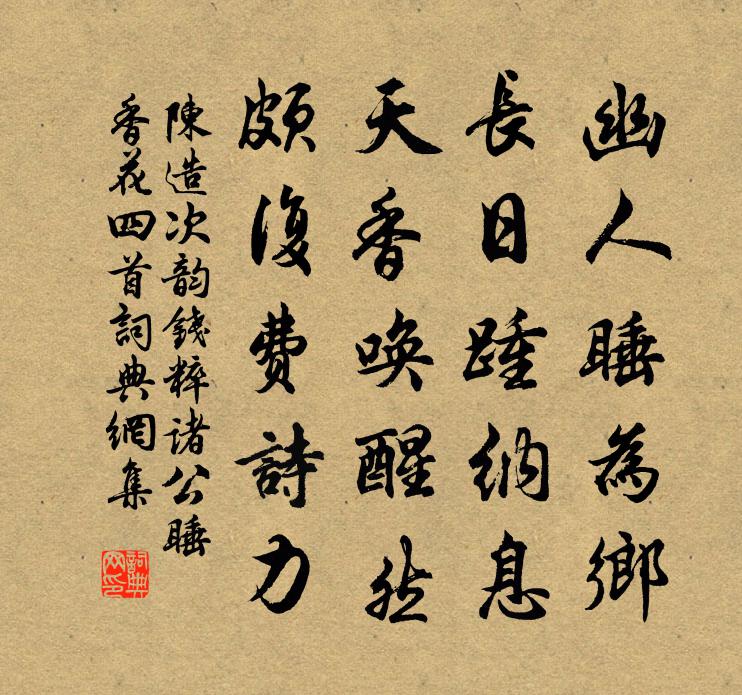 幽人睡為鄉
長日踵納息
天香唤醒然
頗復費詩力
陳造次韵錢粹諸公睡
香花四首詞典網集
詞典
网印